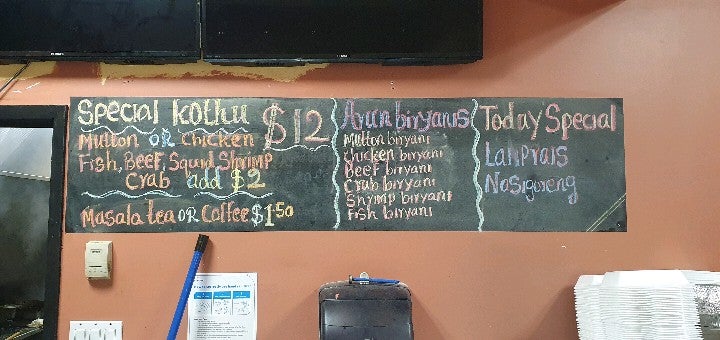 Special kothu $12
Mutton OR Chicken
Fish, Beef, Squid Shrimp
Crab add $2
Masala tea OR Coffee $1.50
biryanis
Mutton biryani
Chicken biryani
Beef biryani
Crab biryani
Shrimp biryani
Fish biryani
Today Special
Lamprais
Nasigoreng